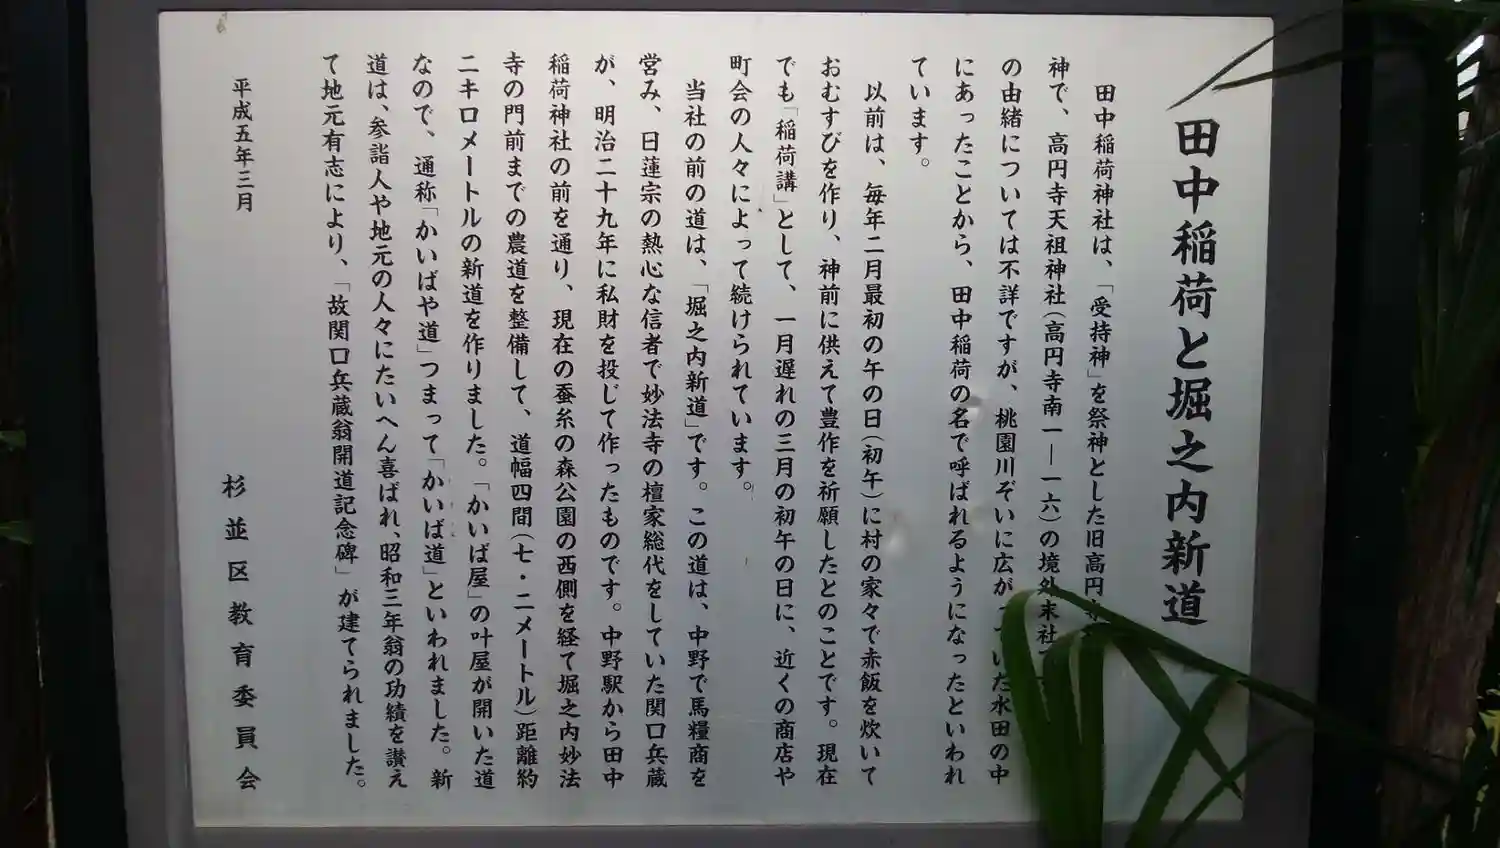 田中稲荷と堀之内新道
田中稲荷神社は、「受持神」を祭神とした旧高円
神で、高円寺天祖神社(高円寺南一―一六)の境外末社
の由緒については不詳ですが、桃園川ぞいに広がっていた水田の中
にあったことから、田中稲荷の名で呼ばれるようになったといわれ
ています。
以前は、毎年二月最初の午の日(初午)に村の家々で赤飯を炊いて
おむすびを作り、神前に供えて豊作を祈願したとのことです。現在
でも「稲荷講」として、一月遅れの三月の初午の日に、近くの商店や
町会の人々によって続けられています。
当社の前の道は、「堀之内新道」です。この道は、中野で馬糧商を
営み、日蓮宗の熱心な信者で妙法寺の檀家総代をしていた関口兵蔵
が、明治二十九年に私財を投じて作ったものです。中野駅から田中
稲荷神社の前を通り、現在の蚕糸の森公園の西側を経て堀之内妙法
寺の門前までの農道を整備して、道幅四間(七・二メートル)距離約
二キロメートルの新道を作りました。「かいば屋」の叶屋が開いた道
なので、通称「かいばや道」つまって「かいば道」といわれました。新
道は、参詣人や地元の人々にたいへん喜ばれ、昭和三年翁の功績を讃え
て地元有志により、「故関口兵蔵翁開道記念碑」が建てられました。
平成五年三月
杉並区教育委員会